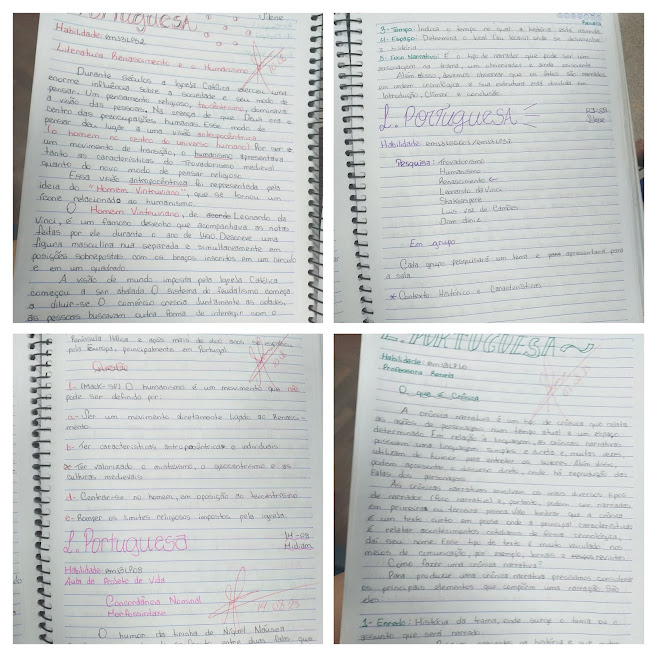 Portuguesa
Jilene
Habilidade: em13LP52
Literatura Renascimento e o Humanismo
Durante séculos a Igreja Católica exerceu uma
enorme influência sobre a sociedade e seu modo de
pensar. Um pensamento religioso, teocêntrico, dominava
a visão das pessoas. Na crença de que Deus era o
centro das preocupações humanas. Esse modo de
pensar deu lugar a uma visão antropocêntrica
(o homem no centro do universo humano). Por ser e
um movimento de transição, o humanismo apresentava
tanto as características do Trovadorismo medieval
quanto do novo modo de pensar religioso.
Essa visão antropocêntrica foi representada pela
ideia do "Homem Vintruviano", que se tornou um
ícone relacionado ao humanismo.
O Homem Vintruviano, de Leonardo da
Vinci, é um famoso desenho que acompanhava as notas
feitas por ele durante o ano de 1490. Descreve uma
figura masculina nua separada e simultaneamente em
posições sobrepostas com os braços inscritos em um círculo
e em um quadrado.
A visão de mundo imposta pela Igreja Católica
começou a ser abalada. O sistema do feudalismo começa
a diluir-se. O comércio crescia juntamente as cidades,
as pessoas buscavam outra forma de interagir com o
3- Tempo: Indica o tempo no qual a história está inserida
4- Espaço: Determina o local (ou locais) onde se desenvolve
a história.
5- Foco Narrativo: É o tipo de narrador que pode ser um
personagem da trama, um observador e ainda onisciente
Além disso, devemos observar que os fatos são narrados
em ordem cronológica e sua estrutura está dividida em
Introdução, Clímax e conclusão.
L. Portuguesa
Jilene
Habilidade:
Pesquisa: Trovadorismo
Humanismo
Renascimento
Leonardo da Vinci
Shakespeare
Luis Vaz de Camões
Dom diniz
Em grupo
Cada grupo pesquisará um tema e para apresentará para
a sala.
* Contexto Histórico e Características
Península Itálica e após mais de dois anos se espalhou
pela Europa, principalmente em Portugal.
Questão
1- (Mack-SP) O humanismo é um movimento que não
pode ser definido por:
a- Ser um movimento diretamente ligado ao Renasci-
mento
b- Ter características antropocêntricas e individuais
Ter valorizado o misticismo, o geocentrismo e as
culturas medievais
d- Centrar-se no homem, em oposição ao teocentrismo
e- Romper os limites religiosos impostos pela Igreja
L. Portuguesa
14-08
Midiam
Habilidade: em13LP08
Aula de Projeto de Vida
Concordância Nominal
Morfossintaxe
14.08.23
O humor da tirinha de Níquel Náusea
entre duas falas que
L. PORTUGUESA
Habilidade: em13LP20
Professora Renata
O que é Crônica
A crônica narrativa é um tipo de crônica que relata
as ações de personagens num tempo atual e um espaço
determinado. Em relação a linguagem, as crônicas narrativas
possuem uma linguagem simples e direta e, muitas vezes,
utilizam do humor para entreter os leitores. Além disso,
podem apresentar o discurso direto, onde há reprodução das
falas dos personagens.
As crônicas narrativas envolvem os mais diversos tipos
de narrador (foco narrativo) e, portanto, podem ser narradas
em primeira ou terceira pessoa. Vale lembrar que a crônica
é um texto curto em prosa onde a principal característica
é relatar acontecimentos cotidianos de forma cronológica,
daí seu nome. Esse tipo de texto é muito veiculado nos
meios de comunicação, por exemplo, jornais e revistas
Como fazer uma crônica narrativa?
Para produzir uma crônica narrativa precisamos considerar
os principais elementos que compõem uma narração. São
eles:
1- Enredo: História da trama, onde surge o tema ou o
assunto que será narrado.